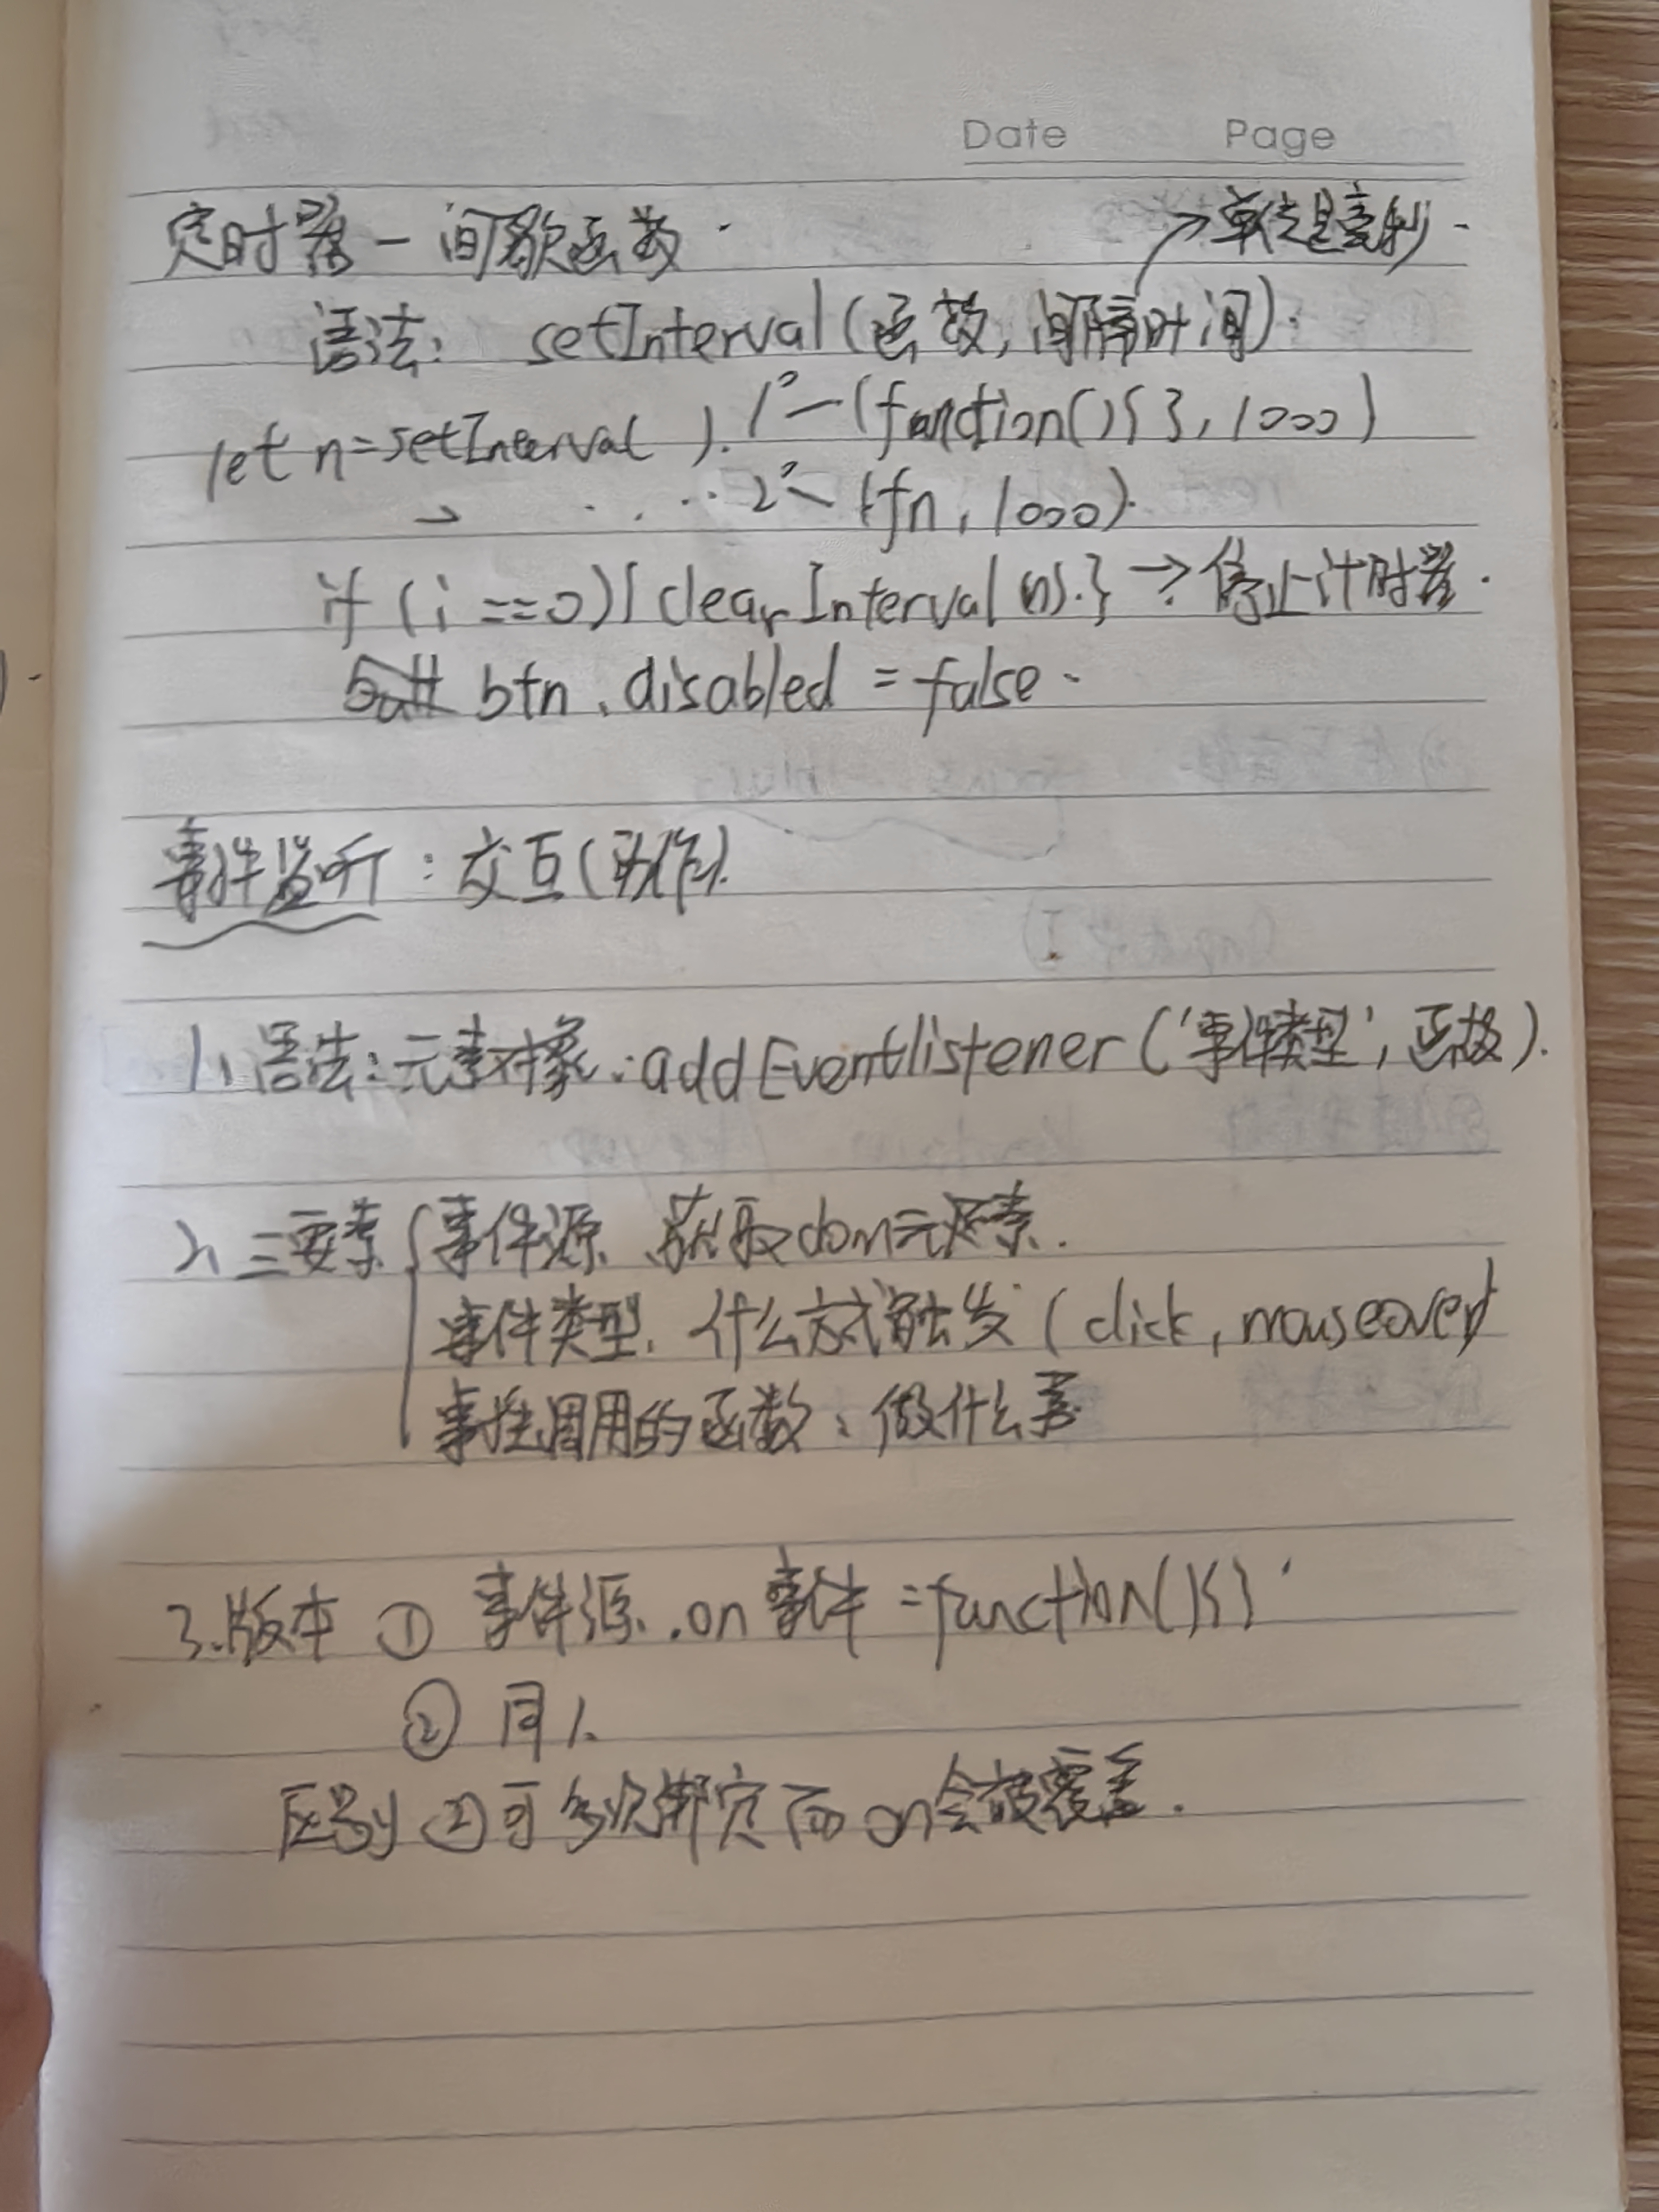 Date Page
定时器-间歇函数. →单位是毫秒.
语法: setInterval(函数,间隔时间).
let n=setInterval( ). 1°—(function(){ }, 1000)
→ . . . . . 2°— (fn, 1000).
if (i ==0){ clearInterval(n).} → 停止计时器.
btn.disabled = false.
事件监听:交互(动作).
1、语法:元素对象.addEventlistener('事件类型',函数).
2、三要素 { 事件源、获取dom元素.
事件类型、什么方式触发 (click, mouseover)
事件调用的函数、做什么事
3.版本 ① 事件源.on事件=function(){}
② 同1.
区别 ②可多次绑定而on会被覆盖.